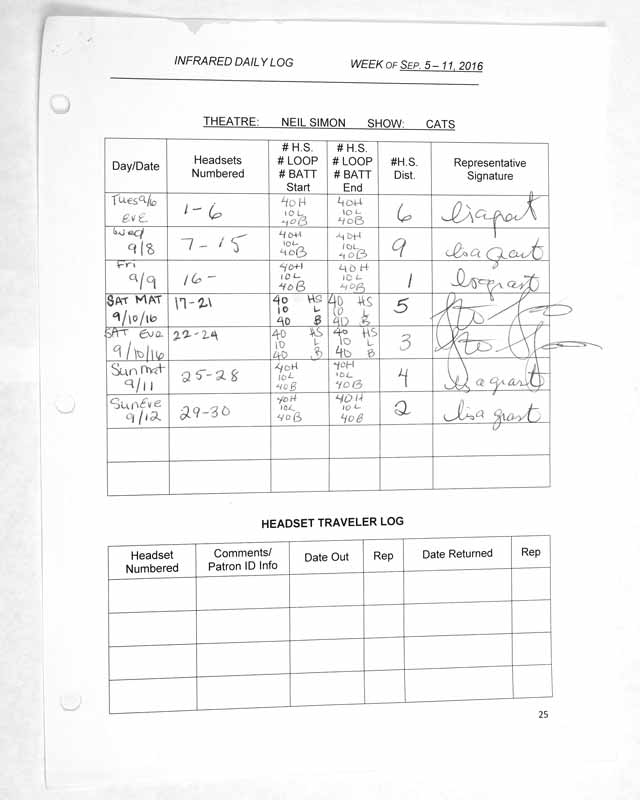 INFRARED DAILY LOG WEEK OF SEP. 5 – 11, 2016
THEATRE: NEIL SIMON SHOW: CATS
Day/Date Headsets Numbered # H.S. # LOOP # BATT Start # H.S. # LOOP # BATT End #H.S. Dist. Representative Signature
Tues 9/6 EVE 1-6 40H 10L 40B 40H 10L 40B 6
Wed 9/8 7-15 40H 10L 40B 40H 10L 40B 9 lisa grant
Fri 9/9 16- 40H 10L 40B 40H 10L 40B 1
SAT MAT 9/10/16 17-21 40 HS 10 L 40 B 40 HS 10 L 40 B 5
SAT Eve 9/10/16 22-24 40 HS 10 L 40 B 40 HS 10 L 40 B 3
Sun Mat 9/11 25-28 40H 10L 40B 40H 10L 40B 4 lisa grant
Sun Eve 9/12 29-30 40H 10L 40B 40H 10L 40B 2 lisa grant
HEADSET TRAVELER LOG
Headset Numbered Comments/ Patron ID Info Date Out Rep Date Returned Rep
25